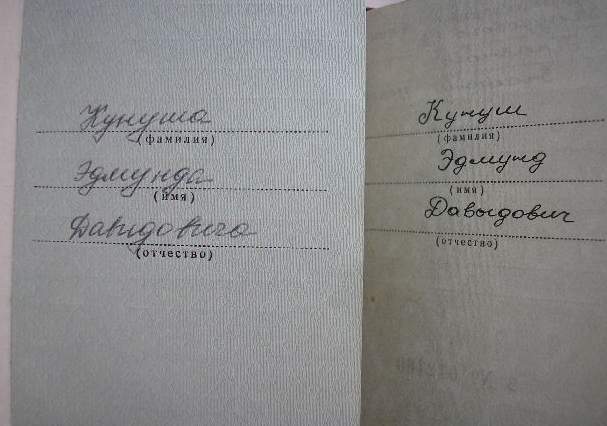 Кунуша
(фамилия)
Эдмунда
(имя)
Давидовича
(отчество)
Кунуш
(фамилия)
Эдмунд
(имя)
Давыдович
(отчество)